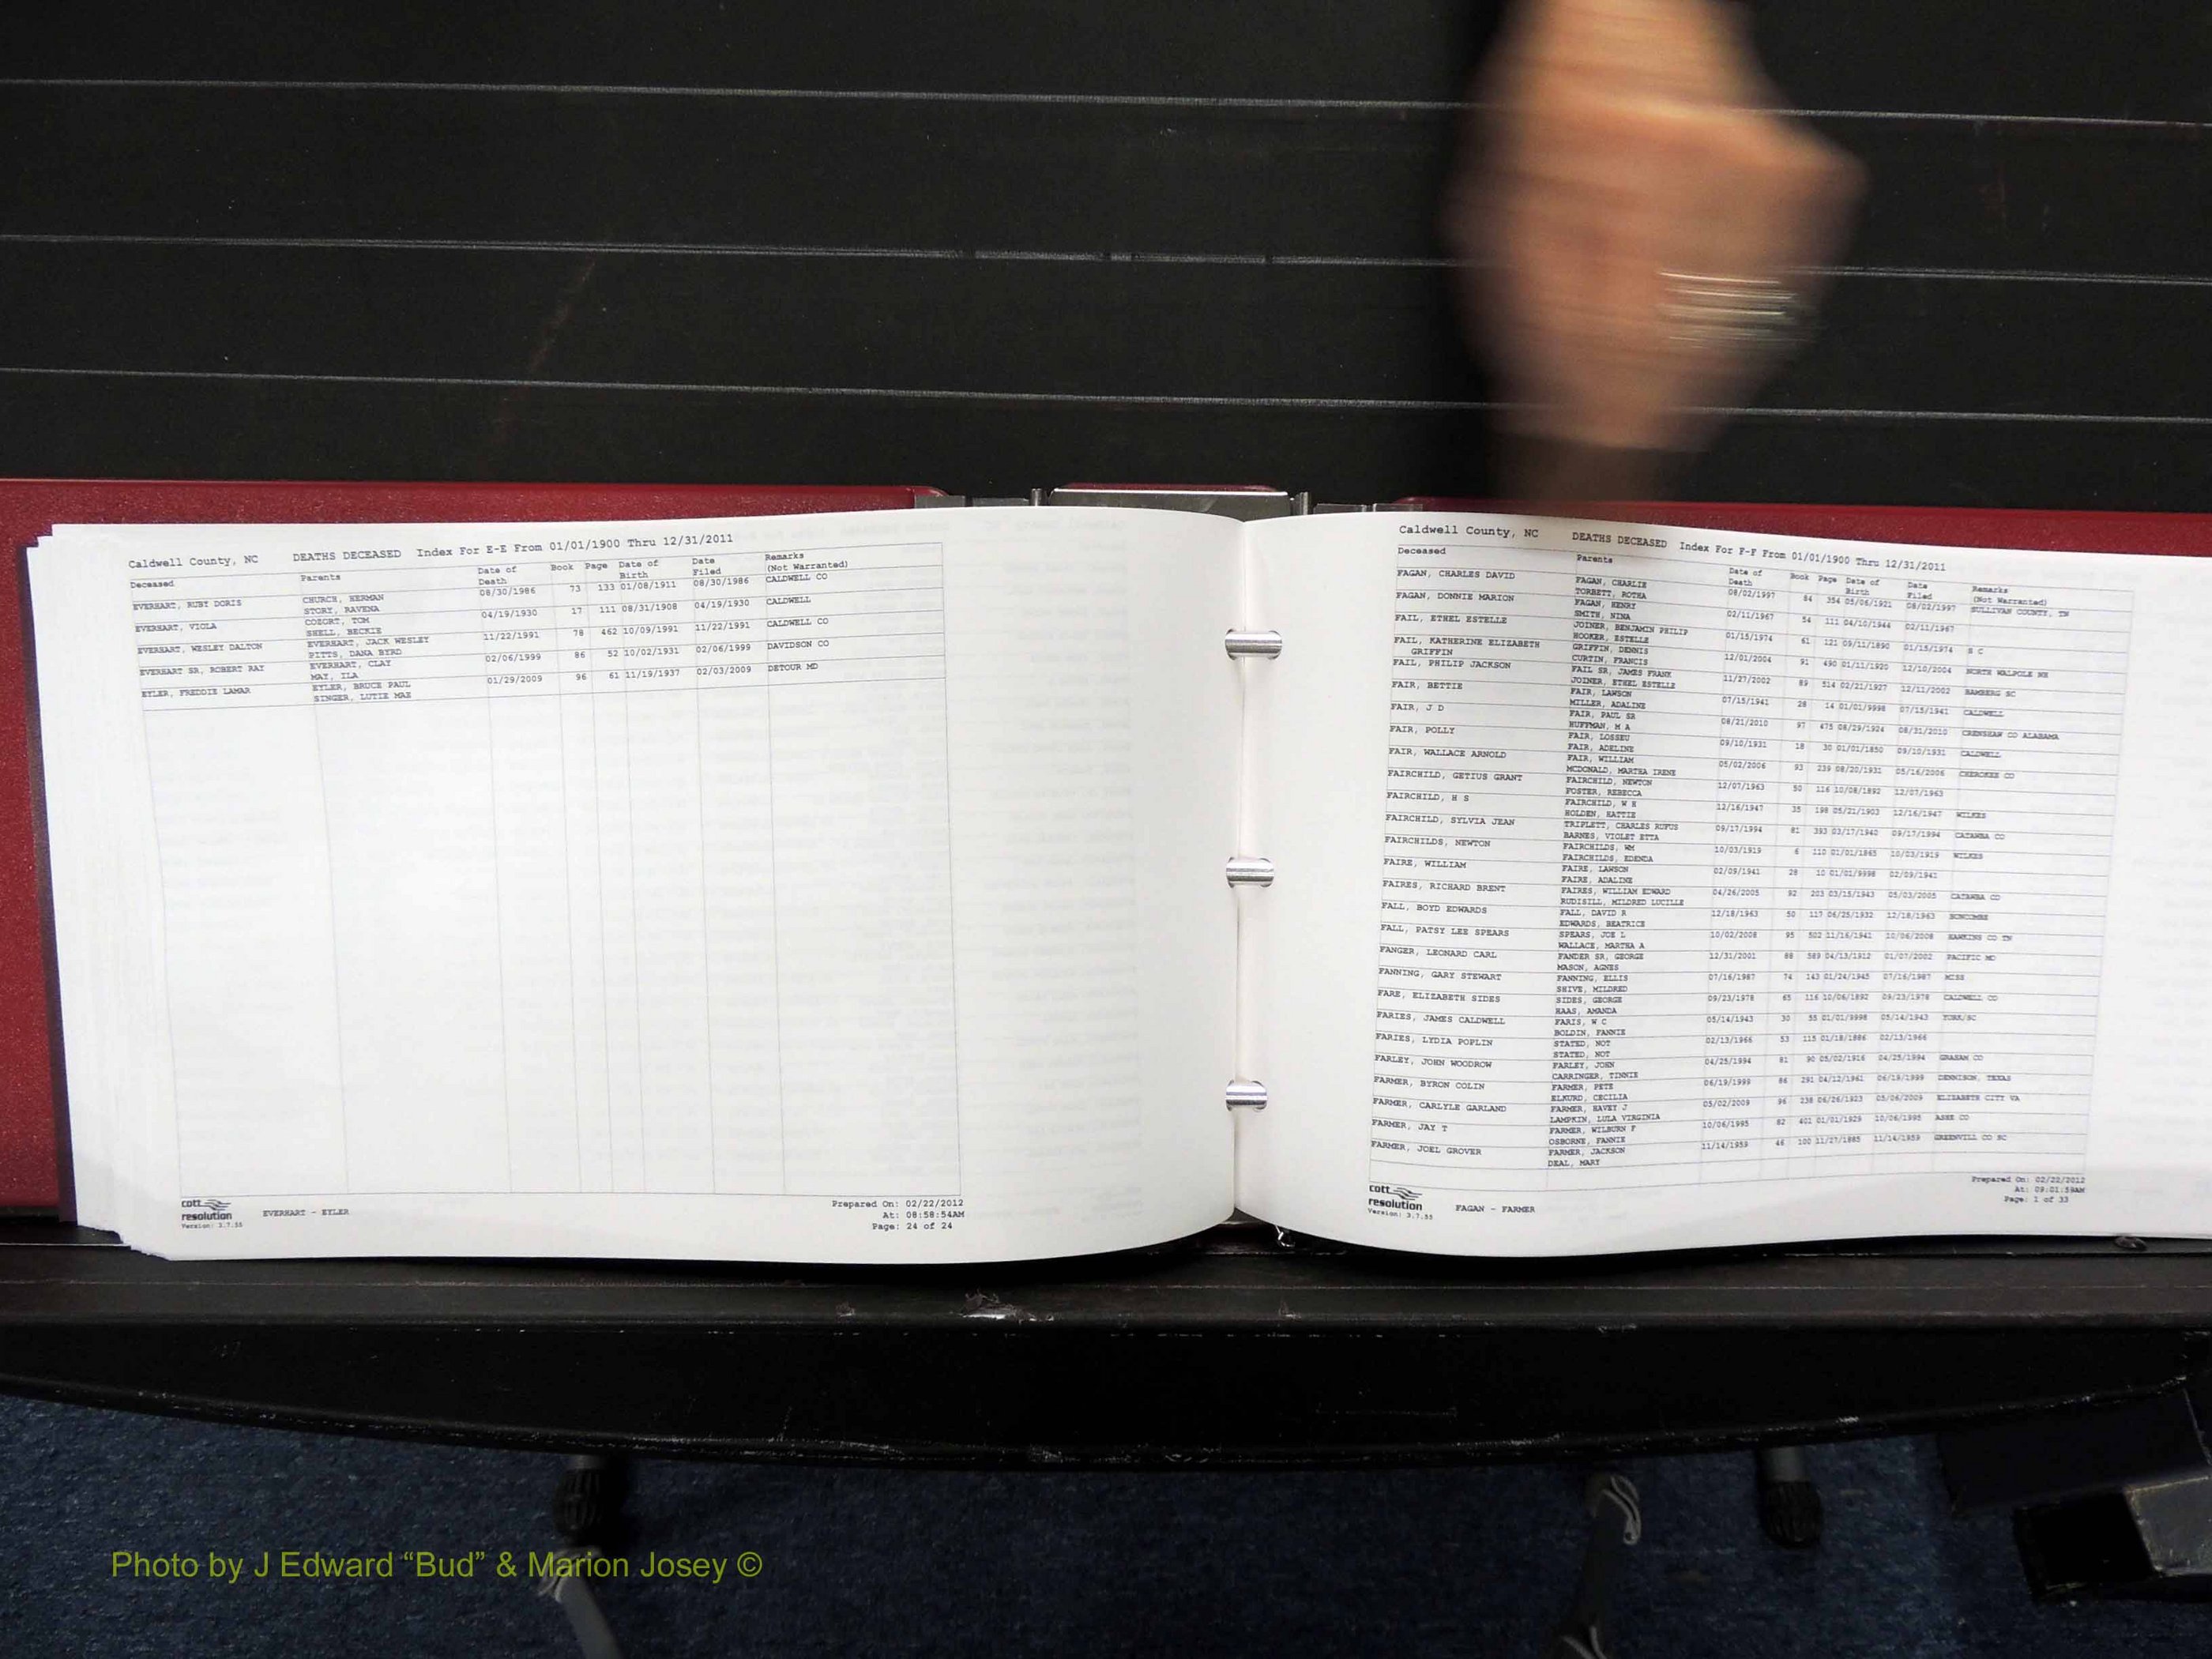 Caldwell County, NC DEATHS DECEASED Index For E-E From 01/01/1900 Thru 12/31/2011
Deceased Parents Date of Death Book Page Date of Birth Date Filed Remarks (Not Warranted)
EVERHART, RUBY DORIS CHURCH, HERMAN 08/30/1986 73 133 01/08/1911 08/30/1986 CALDWELL CO
STORY, RAVENA
EVERHART, VIOLA COZORT, TOM 04/19/1930 17 111 08/31/1908 04/19/1930 CALDWELL
SHELL, BECKIE
EVERHART, WESLEY DALTON EVERHART, JACK WESLEY 11/22/1991 78 462 10/09/1991 11/22/1991 CALDWELL CO
PITTS, DANA BYRD
EVERHART SR, ROBERT RAY EVERHART, CLAY 02/06/1999 86 52 10/02/1931 02/06/1999 DAVIDSON CO
MAY, ILA
EYLER, FREDDIE LAMAR EYLER, BRUCE PAUL 01/29/2009 96 61 11/19/1937 02/03/2009 DETOUR MD
SINGER, LUTIE MAE
cott resolution
Version: 3.7.55
EVERHART - EYLER
Prepared On: 02/22/2012
At: 08:58:54AM
Page: 24 of 24
Caldwell County, NC DEATHS DECEASED Index For F-F From 01/01/1900 Thru 12/31/2011
Deceased Parents Date of Death Book Page Date of Birth Date Filed Remarks (Not Warranted)
FAGAN, CHARLES DAVID FAGAN, CHARLIE 08/02/1997 84 354 05/06/1921 08/02/1997 SULLIVAN COUNTY, TN
TORBETT, ROTHA
FAGAN, DONNIE MARION FAGAN, HENRY 02/11/1967 54 111 04/10/1944 02/11/1967
SMITH, NINA
FAIL, ETHEL ESTELLE JOINER, BENJAMIN PHILIP 01/15/1974 61 121 09/11/1890 01/15/1974 S C
HOOKER, ESTELLE
FAIL, KATHERINE ELIZABETH GRIFFIN, DENNIS 12/01/2004 91 490 01/11/1920 12/10/2004 NORTH WALPOLE NH
GRIFFIN CURTIN, FRANCIS
FAIL, PHILIP JACKSON FAIL SR, JAMES FRANK 11/27/2002 89 514 02/21/1927 12/11/2002 BAMBERG SC
JOINER, ETHEL ESTELLE
FAIR, BETTIE FAIR, LAWSON 07/15/1941 28 14 01/01/9998 07/15/1941 CALDWELL
MILLER, ADALINE
FAIR, J D FAIR, PAUL SR 08/21/2010 97 475 08/29/1924 08/31/2010 CRENSHAW CO ALABAMA
HUFFMAN, M A
FAIR, POLLY FAIR, LOSSEU 09/10/1931 18 30 01/01/1850 09/10/1931 CALDWELL
FAIR, ADELINE
FAIR, WALLACE ARNOLD FAIR, WILLIAM 05/02/2006 93 239 08/20/1931 05/16/2006 CHEROKEE CO
MCDONALD, MARTHA IRENE
FAIRCHILD, GETIUS GRANT FAIRCHILD, NEWTON 12/07/1963 50 116 10/08/1892 12/07/1963
FOSTER, REBECCA
FAIRCHILD, H S FAIRCHILD, W H 12/16/1947 35 198 05/21/1903 12/16/1947 WILKES
HOLDEN, HATTIE
FAIRCHILD, SYLVIA JEAN TRIPLETT, CHARLES RUFUS 09/17/1994 81 393 03/17/1940 09/17/1994 CATAWBA CO
BARNES, VIOLET ETTA
FAIRCHILDS, NEWTON FAIRCHILDS, WM 10/03/1919 6 110 01/01/1865 10/03/1919 WILKES
FAIRCHILDS, EDENDA
FAIRE, WILLIAM FAIRE, LAWSON 02/09/1941 28 10 01/01/9998 02/09/1941
FAIRE, ADALINE
FAIRES, RICHARD BRENT FAIRES, WILLIAM EDWARD 04/26/2005 92 203 03/15/1943 05/03/2005 CATAWBA CO
RUDISILL, MILDRED LUCILLE
FALL, BOYD EDWARDS FALL, DAVID R 12/18/1963 50 117 06/25/1932 12/18/1963 BUNCOMBE
EDWARDS, BEATRICE
FALL, PATSY LEE SPEARS SPEARS, JOE L 10/02/2008 95 502 11/16/1941 10/06/2008 HAWKINS CO TN
WALLACE, MARTHA A
FANGER, LEONARD CARL FANDER SR, GEORGE 12/31/2001 88 589 04/13/1912 01/07/2002 PACIFIC MO
MASON, AGNES
FANNING, GARY STEWART FANNING, ELLIS 07/16/1987 74 143 01/24/1945 07/16/1987 MISS
SHIVE, MILDRED
FARE, ELIZABETH SIDES SIDES, GEORGE 09/23/1978 65 116 10/06/1892 09/23/1978 CALDWELL CO
HAAS, AMANDA
FARIES, JAMES CALDWELL FARIS, W C 05/14/1943 30 55 01/01/9998 05/14/1943 YORK/SC
BOLDIN, FANNIE
FARIES, LYDIA POPLIN STATED, NOT 02/13/1966 53 115 01/18/1886 02/13/1966
STATED, NOT
FARLEY, JOHN WOODROW FARLEY, JOHN 04/25/1994 81 90 05/02/1916 04/25/1994 GRAHAM CO
CARRINGER, TINNIE
FARMER, BYRON COLIN FARMER, PETE 06/19/1999 86 291 04/12/1961 06/19/1999 DENNISON, TEXAS
ELKURD, CECILIA
FARMER, CARLYLE GARLAND FARMER, HAVEY J 05/02/2009 96 238 06/26/1923 05/06/2009 ELIZABETH CITY VA
LAMPKIN, LULA VIRGINIA
FARMER, JAY T FARMER, WILBURN F 10/06/1995 82 401 01/01/1929 10/06/1995 ASHE CO
OSBORNE, FANNIE
FARMER, JOEL GROVER FARMER, JACKSON 11/14/1959 46 100 11/27/1885 11/14/1959 GREENVILL CO SC
DEAL, MARY
cott resolution
Version: 3.7.55
FAGAN - FARMER
Prepared On: 02/22/2012
At: 09:01:59AM
Page: 1 of 33
Photo by J Edward “Bud” & Marion Josey ©